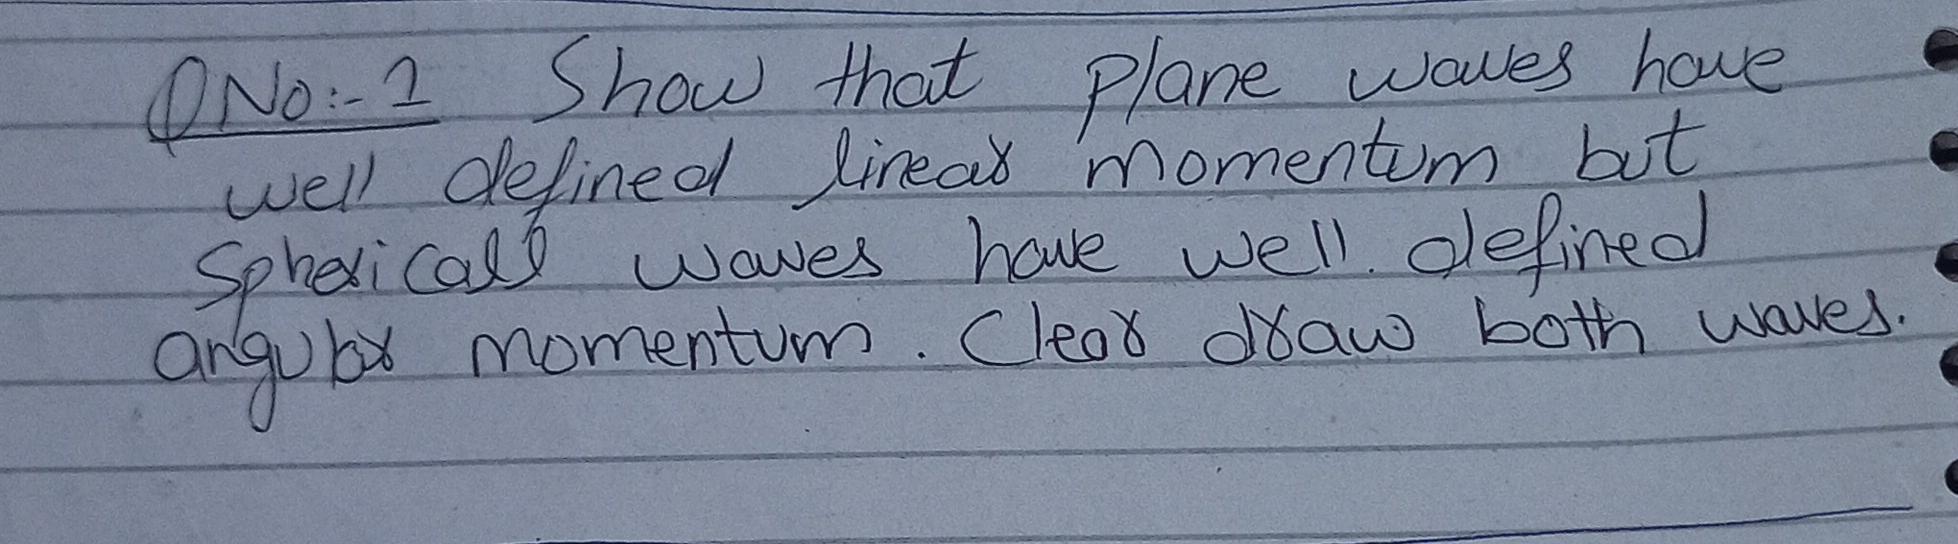 QNo:-1 Show that plane waves have
well defined linear momentum but
Spherical waves have well defined
angular momentum. Clear draw both waves.